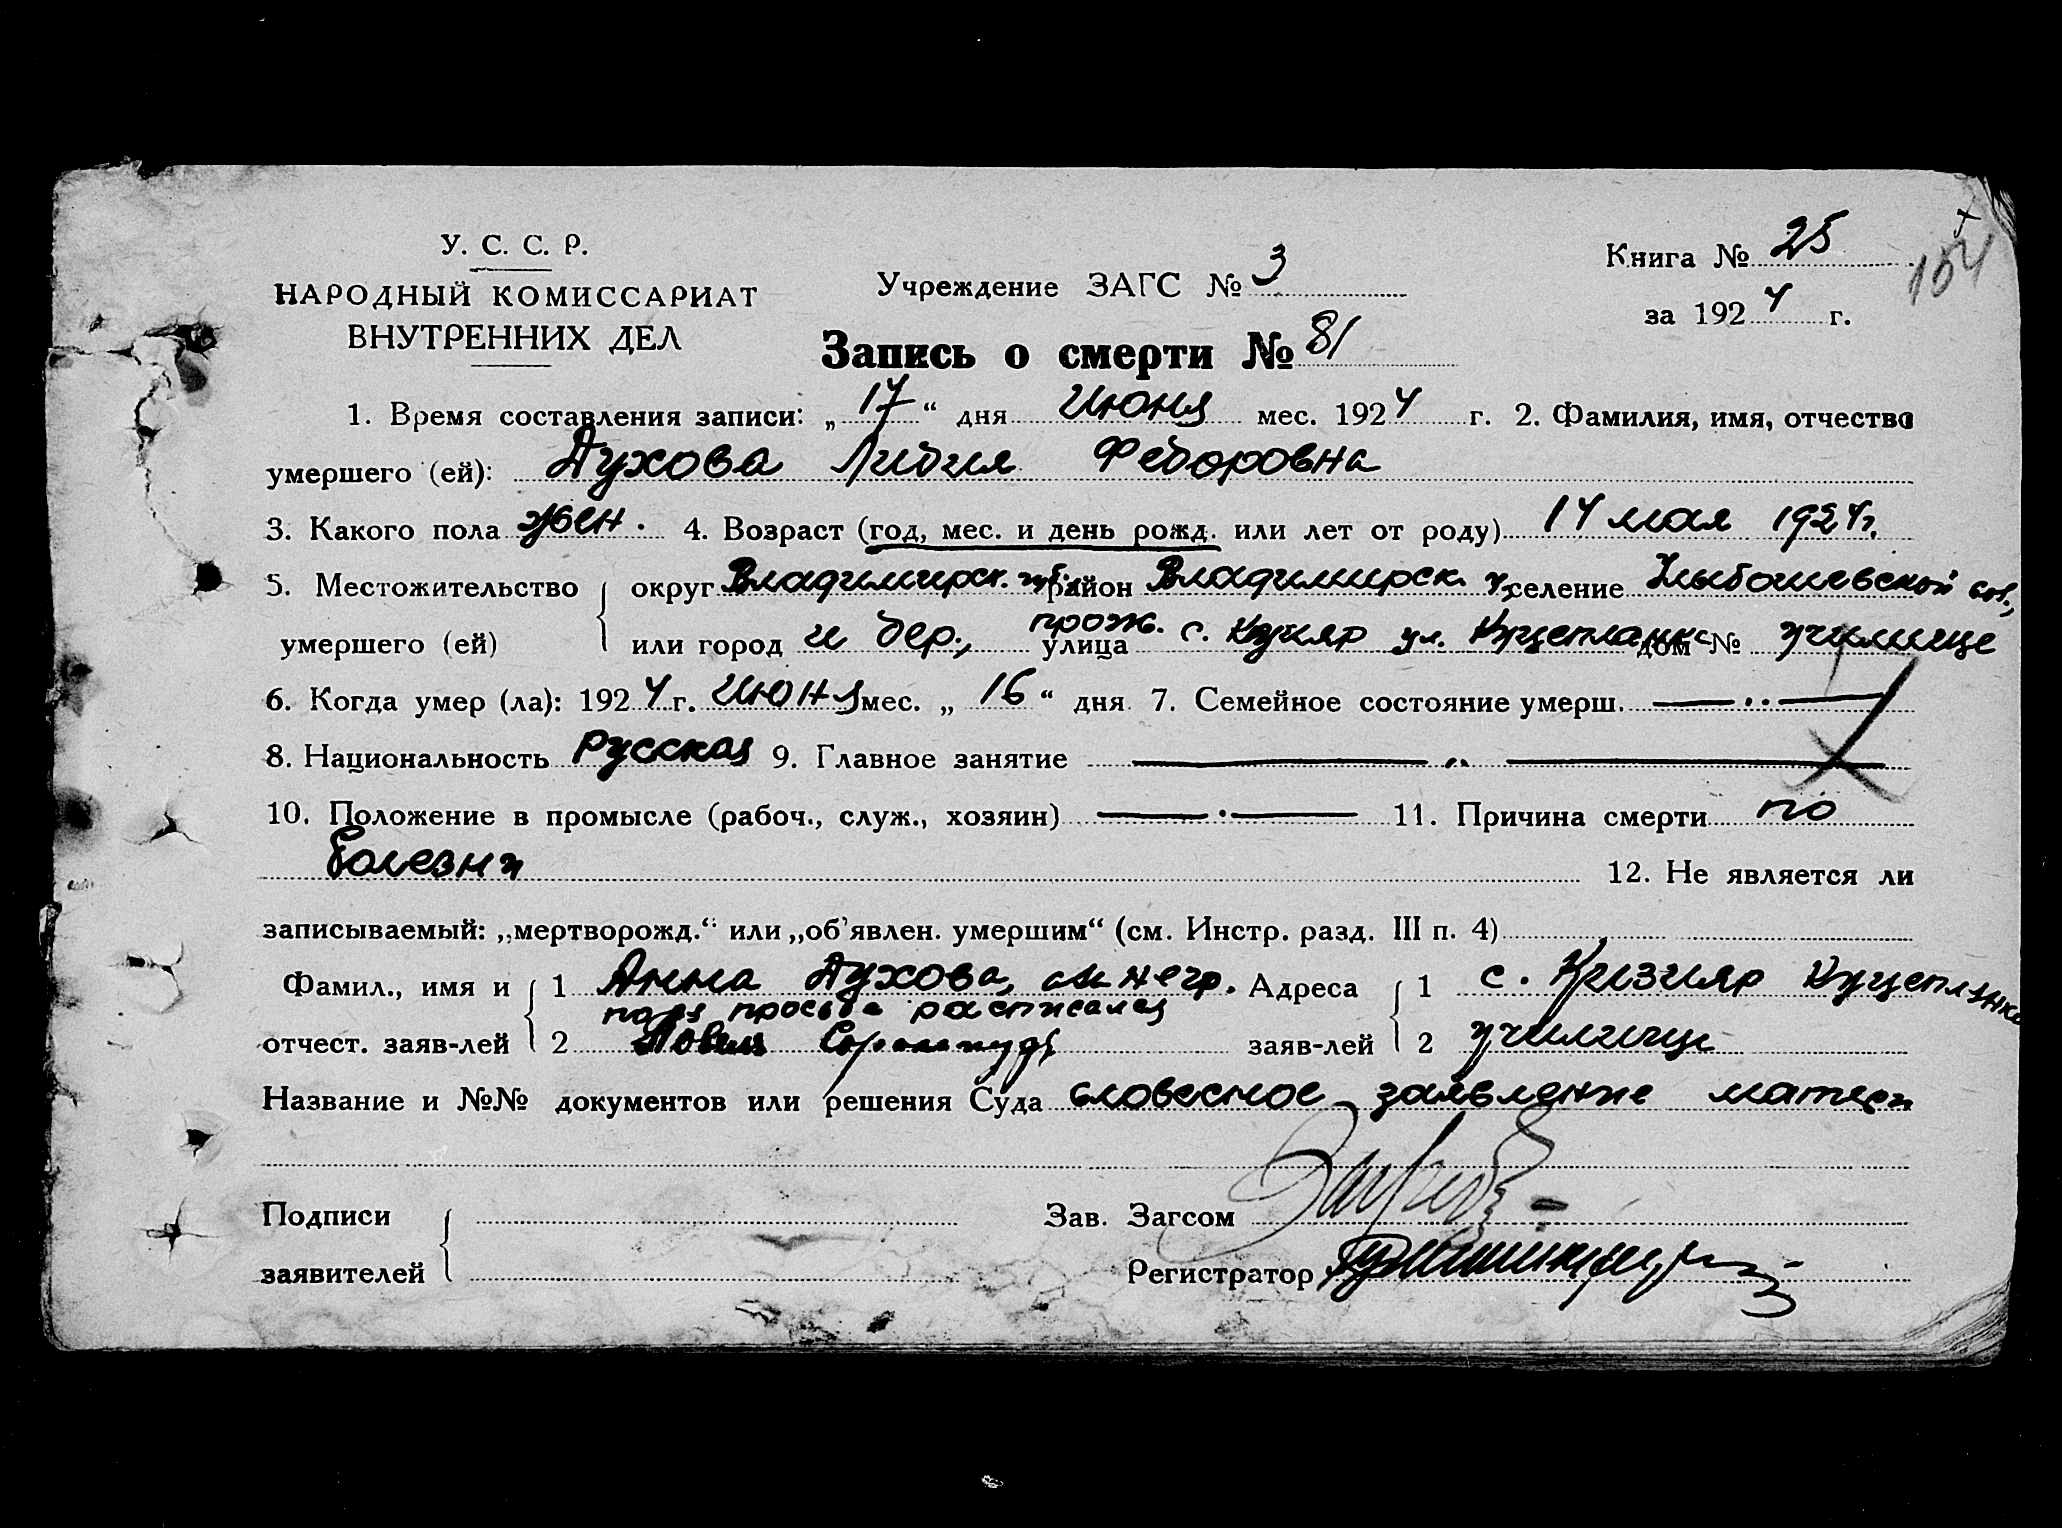 У. С. С. Р.
НАРОДНЫЙ КОМИССАРИАТ
ВНУТРЕННИХ ДЕЛ
Учреждение ЗАГС № 3
Книга № 25
104
за 1924 г.
Запись о смерти № 81
1. Время составления записи: „17“ дня Июня мес. 1924 г. 2. Фамилия, имя, отчество
умершего (ей): Духова Лидия Федоровна
3. Какого пола жен. 4. Возраст (год, мес. и день рожд. или лет от роду) 14 мая 1924 г.
5. Местожительство округ Владимирск. губ. район Владимирск. у. селение сов.,
умершего (ей) или город и дер., прож. улица с. ул. дом № училище
6. Когда умер (ла): 1924 г. Июня мес. „16“ дня 7. Семейное состояние умерш. — ·· —
8. Национальность Русская 9. Главное занятие — „ —
10. Положение в промысле (рабоч., служ., хозяин) — · — 11. Причина смерти по
болезни 12. Не является ли
записываемый: „мертворожд.“ или „об'явлен. умершим“ (см. Инстр. разд. III п. 4)
Фамил., имя и 1 Анна Духова, негр. Адреса 1 с. Кизияр
просьба расписался
отчест. заяв-лей 2 заяв-лей 2 училище
Название и №№ документов или решения Суда словесное заявление матери
Подписи Зав. Загсом
заявителей Регистратор